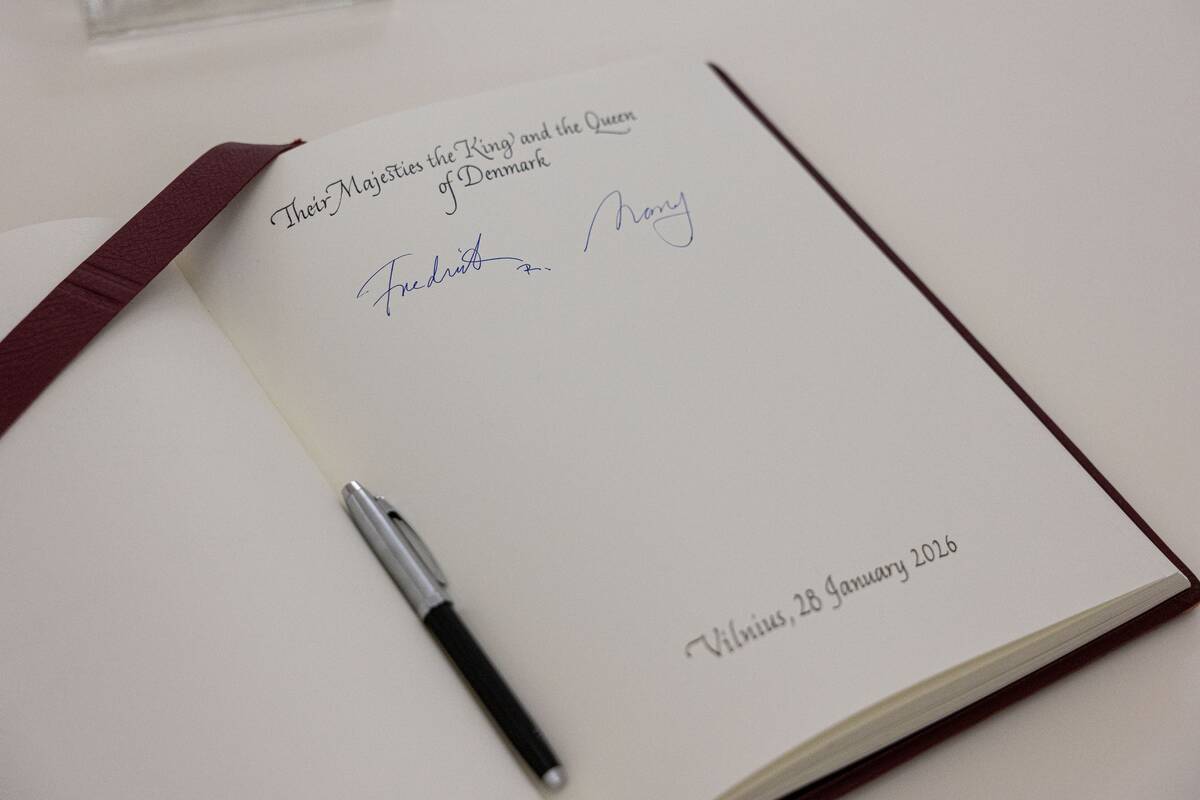 Their Majesties the King and the Queen
of Denmark
Frederik R. Mary
Vilnius, 28 January 2026